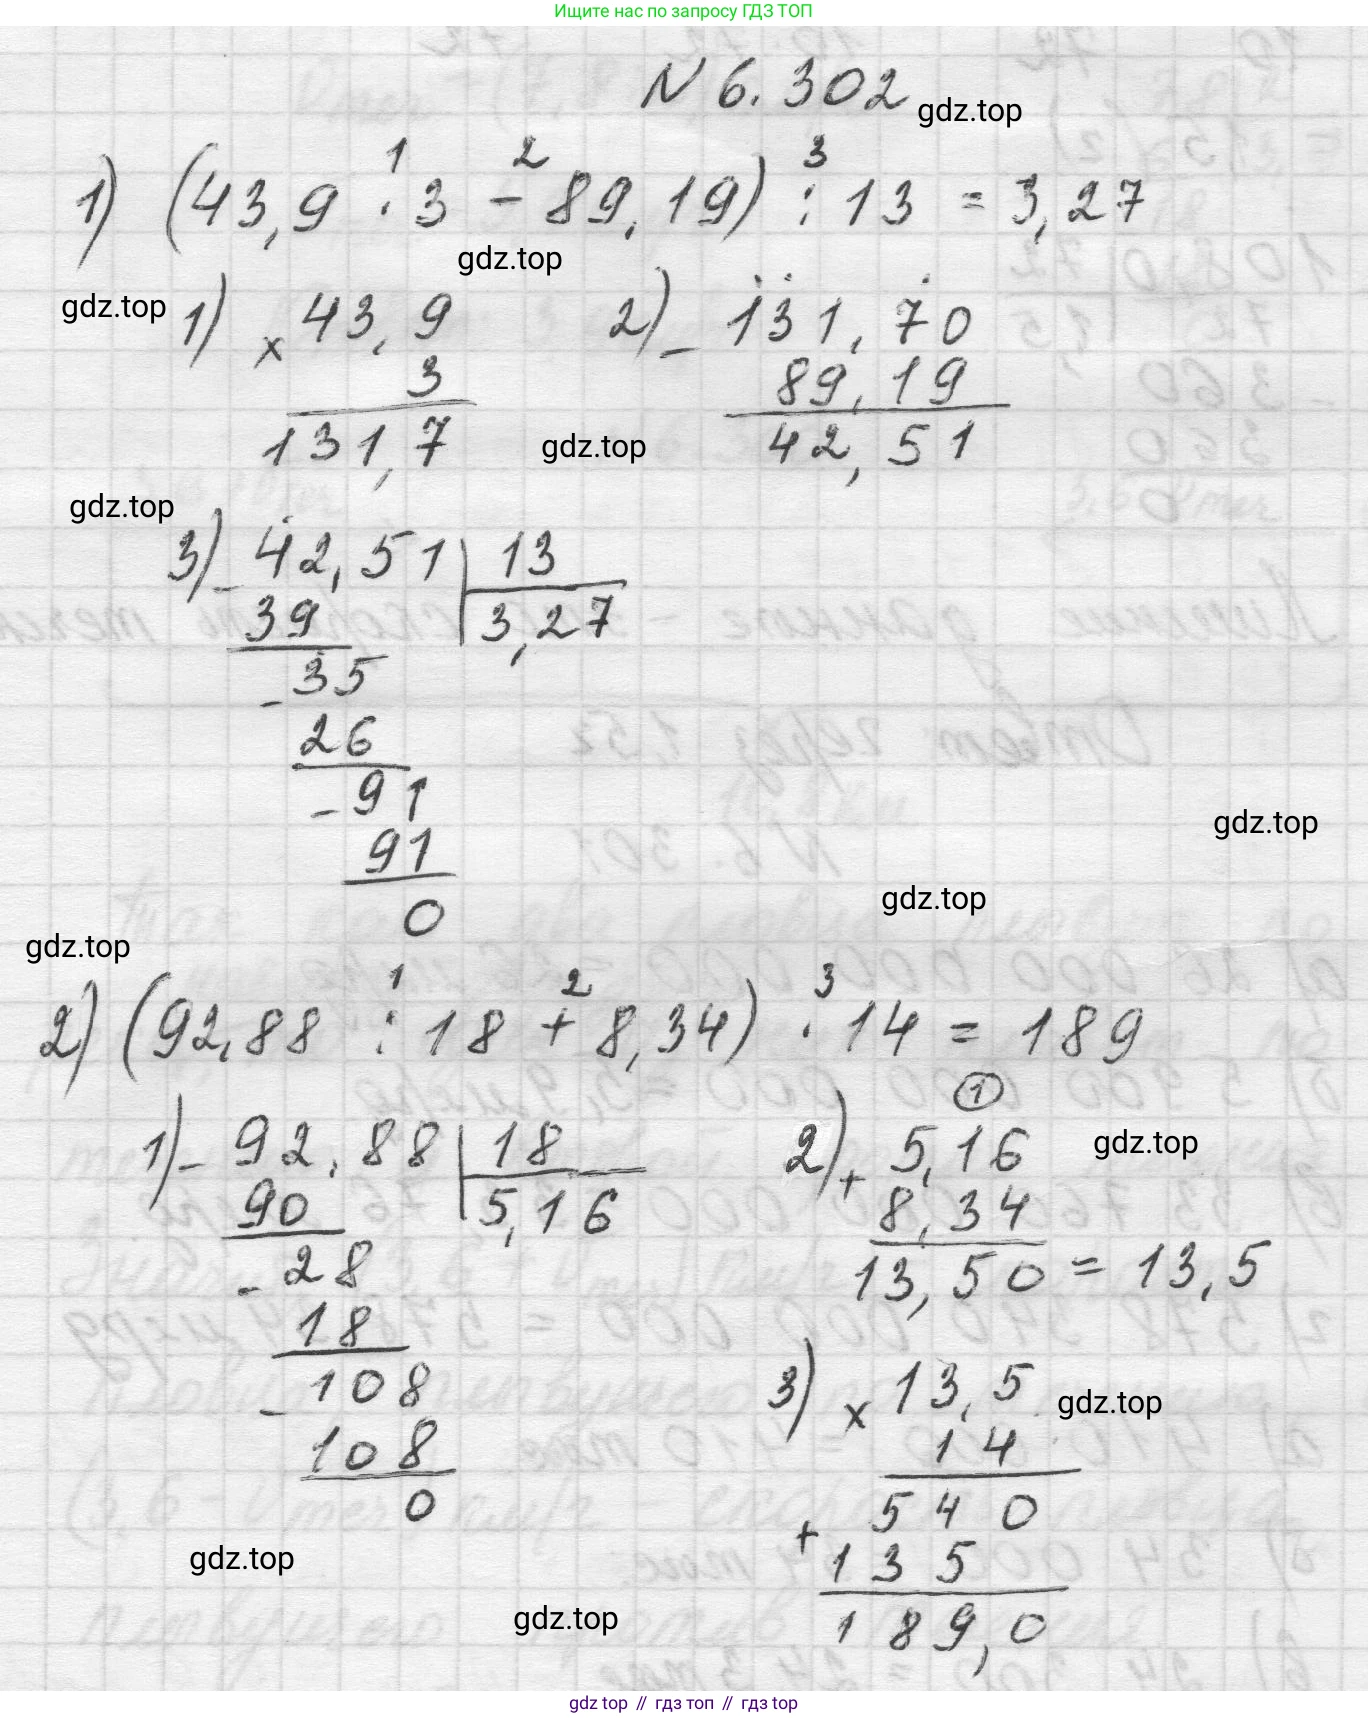 Ищите нас по запросу ГДЗ ТОП
N 6.302
gdz.top
1) (43,9 · 3 - 89,19) : 13 = 3,27
1 2 3
gdz.top
gdz.top
1) × 43,9
3
131,7
2) - 131,70
89,19
42,51
gdz.top
gdz.top
3) - 42,51 | 13
39 3,27
- 35
26
- 91
91
0
gdz.top
gdz.top
gdz.top
1 2 3
2) (92,88 : 18 + 8,34) · 14 = 189
1) - 92,88 | 18
90 5,16
- 28
18
- 108
108
0
1
2) + 5,16
8,34
13,50 = 13,5
gdz.top
3) × 13,5
14
540
+ 135
189,0
gdz.top
gdz.top
gdz.top
gdz top // гдз топ // gdz top